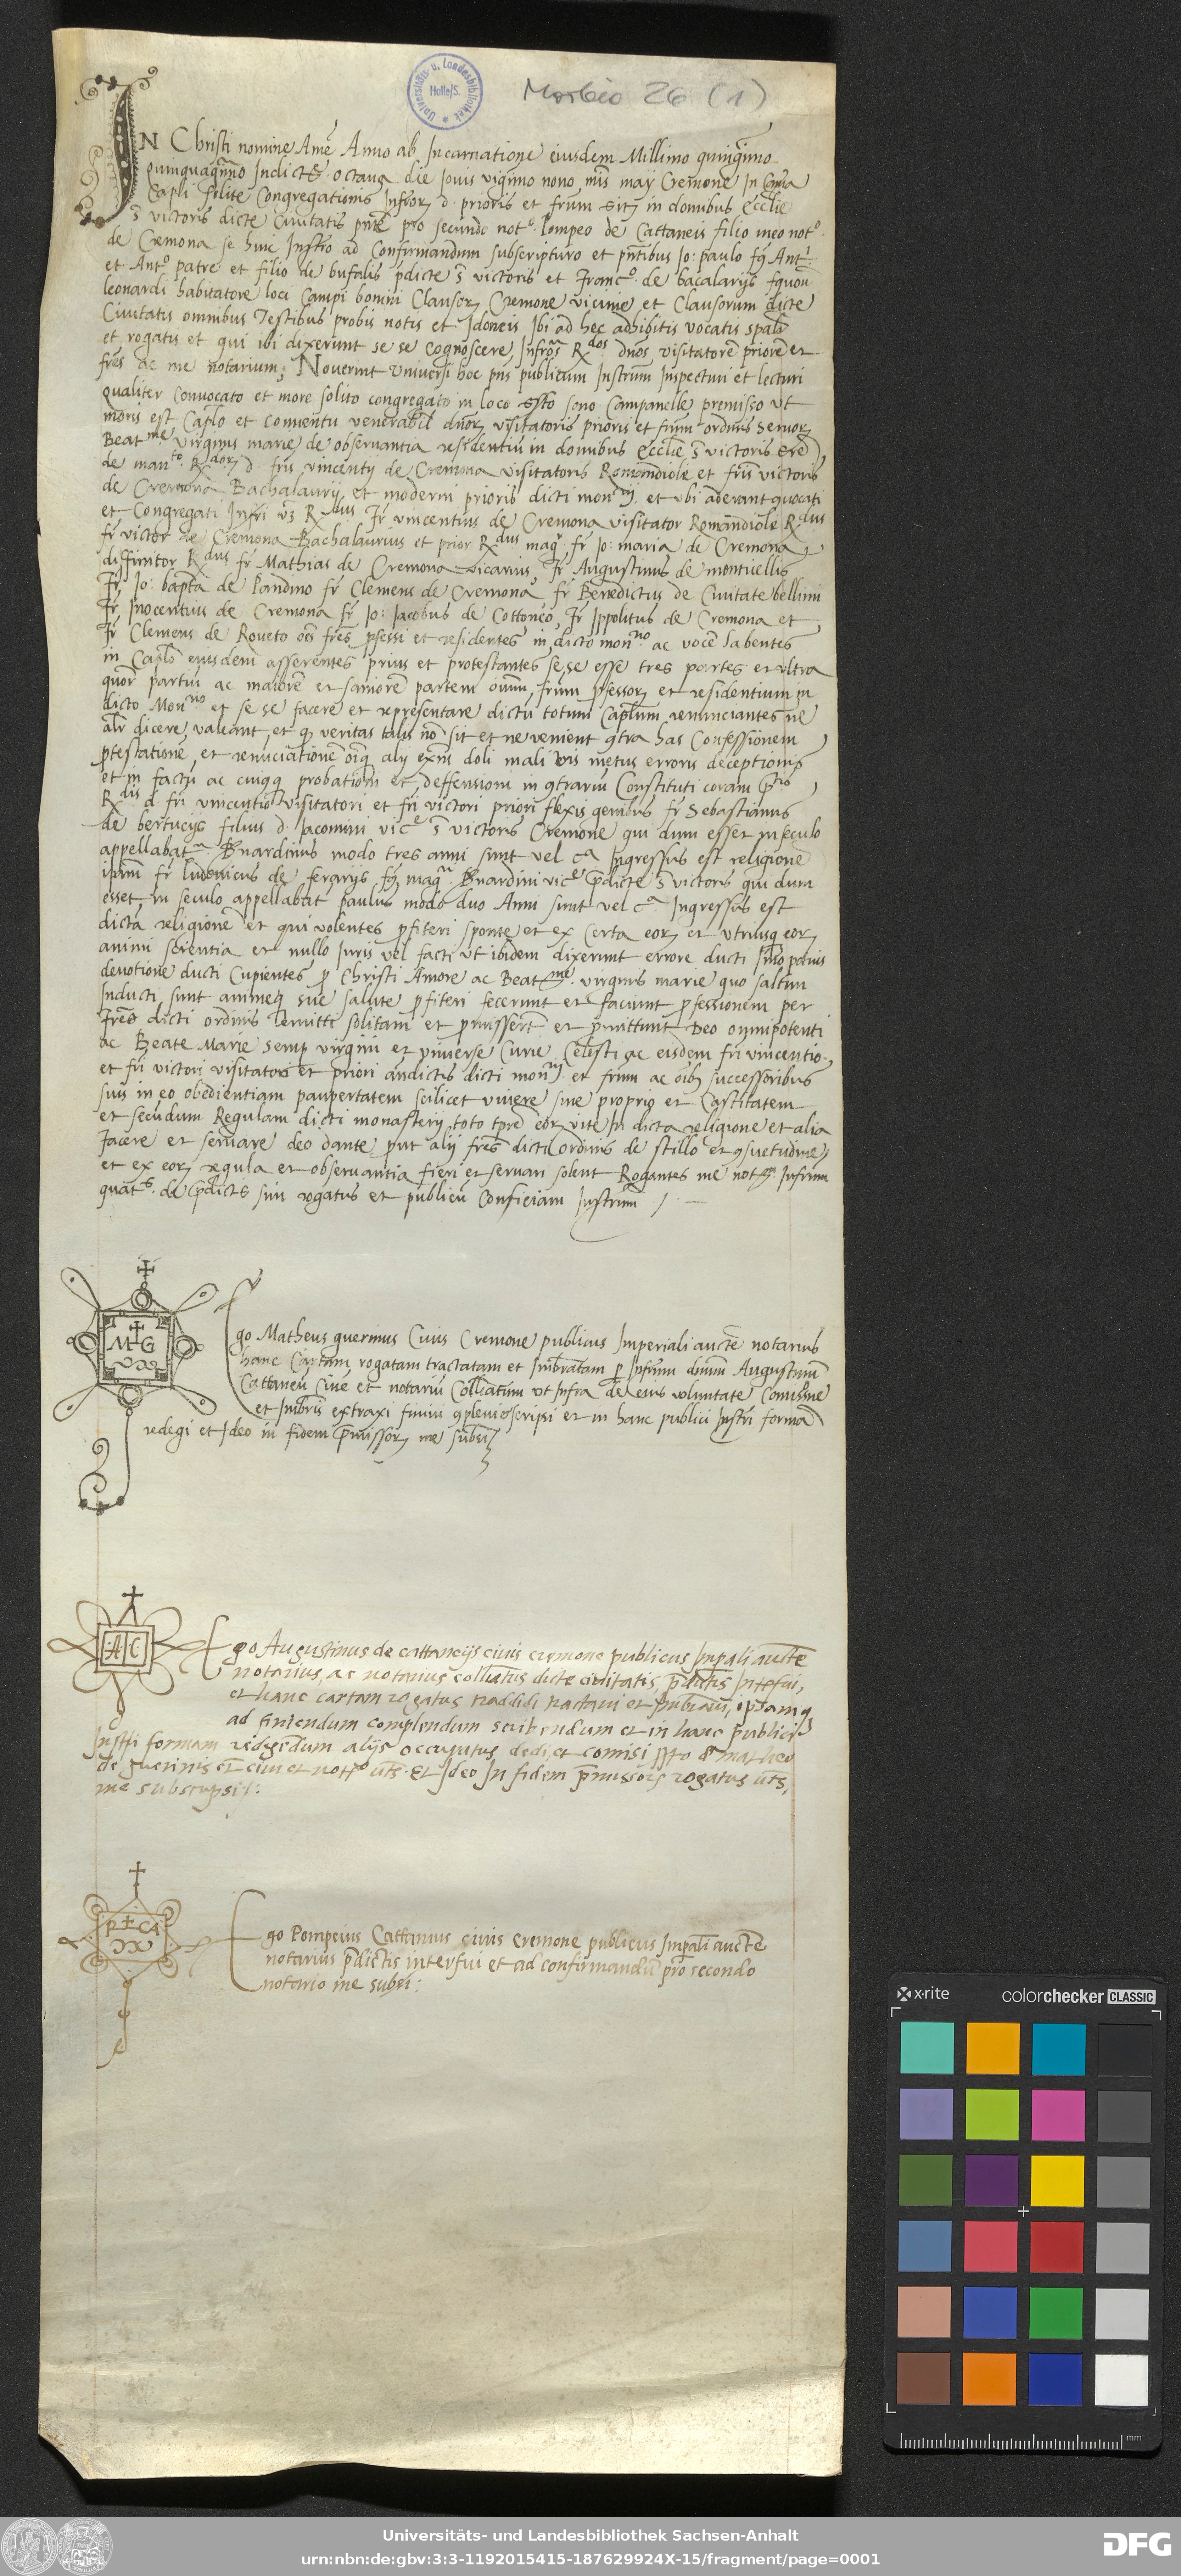 Morbio 26 (1)
Universitäts- u. Landesbibliothek Halle/S.
IN Christi nomine Amē Anno ab Incarnatione eiusdem Millimo quingmo
quinquagmo Indictē octaua die Iouis vigmo nono mīs maij Cremone In
Capli solite Congregationis Infrorz d. prioris et frum in domibus Ecclie
s̄ victoris dicte Ciuitatis pnte pro secundo noto. Pompeo de Cattaneis filio meo noto.
de Cremona se huic Instro ad Confirmandum subscripturo et pntibus Jo: paulo fq Anti
et Anto. patre et filio de bufalis pdicte s̄ victoris et Franco. de bacalarijs fquon
leonardi habitatore loci Campi bonini Clausorz Cremone vicinie et Clausorum dicte
Ciuitatis omnibus Testibus probis notis et Idoneis Ibi ad hec adhibitis vocatis spalr
et rogatis et qui ibi dixerunt se se cognoscere Infros Rdos. dnos visitatorē priorē et
fres ac me notarium; Nouerint vniuersi hoc pns publicum Instrum Inspecturi et lecturi
qualiter Conuocato et more solito congregato in loco sto sono Campanelle premisso vt
moris est Caplo et Conuentu venerabil dnorz visitatoris prioris et frum ordinis Seruorz
Beatme. virginis marie de obseruantia residentiu in domibus Ecclie s̄ victoris
de manto. Rdorz d. fris vincentij de Cremona visitatoris Romandiole et fris victoris
de Cremona Bachalaurij et moderni prioris dicti monrij. et vbi aderant quocati
et Congregati Infri vz Rdus Fr vincentius de Cremona visitator Romandiole Rdus
fr victor de Cremona Bachalaurius et prior Rdus magr. fr Jo: maria de Cremona
diffinitor Rdus fr Mathias de Cremona vicarius, Fr Augustinus de monticellis
Fr Jo: bapta de Pandino fr Clemens de Cremona fr Benedictus de Ciuitate bellini
Fr Inocentius de Cremona fr Jo: Jacobus de Cottoneo, Fr Ippolitus de Cremona et
Fr Clemens de Roueto oēs fres pfessi et residentes in dicto monrio. ac vocē habentes
in Caplo eiusdem asserentes prius et protestantes se se esse tres partes et vltra
quor partiu ac maiorē et saniorē partem oium frum pfessorz et residentium in
dicto Monrio et se se facere et representare dictu totum Caplum renunciantes ne
alr dicere valeant et q veritas talis nō sit et ne venient qtra has Confessionem
ptestationē et renuciationē oiq alij exni doli mali vis metus erroris deceptionis
et in factu ac cuiqq probationi et deffensioni in qtrariu Constituti coram ptis
Rdis d fri vincentio visitatori et fri victori priori flexis genibus fr Sebastianus
de bertucijs filius d. Iacomini vice s̄ victoris Cremone qui dum esset in seculo
appellabatr Bnardinus modo tres anni sunt vel ca Ingressus est religionē
ipam fr ludouicus de ferarijs fq magri Bnardini vice pdicte s̄ victoris qui dum
esset in seculo appellabat paulus modo duo Anni sunt vel ca Ingressus est
dicta religionē et qui volentes pfiteri sponte et ex Certa eorz et vtriusq eorz
animi scientia et nullo Iuris vel facti vt ibidem dixerunt errore ducti Imo
deuotione ducti Cupientes p Christi Amore ac Beatme. virginis marie quo saltim
Inducti sunt animeq sue salute pfiteri fecerunt et faciunt pfessionem per
Fres dicti ordinis emitti solitam et pmisserūt et pmittunt Deo omnipotenti
ac Beate Marie semp virgini et vniuerse Curie Celesti ac eisdem fri vincentio.
et fri victori visitatori et priori andictis dicti monrij et frum ac oibz successoribus
suis in eo obedientiam paupertatem scilicet viuere sine proprio et Castitatem
et secudum Regulam dicti monasterij toto tpre eorz vite In dicta religione et alia
facere et seruare deo dante put alij fres dicti ordinis de stillo et qsuetudine
et ex eorz regula et obseruantia fieri et seruari solent Rogantes me not Infrum
quats. de pdictis sim rogatus et publicu Conficiam Instrum /.
M G
Ego Matheus guerinus Ciuis Cremone publicus Imperiali aucte notarius
hanc Cartam rogatam tractatam et Imbratam p Infrum dnum Augustinum
Cattaneu Ciue et notariu Colliatum vt Infra de eius voluntate Comissione
et Imbris extraxi finiui qpleui scripsi et in hanc publici Instri forma
redegi et Ideo in fidem pmissorz me subsi
A C
Ego Augustinus de cattaneijs ciuis cremone publicus Inpali aucte
notarius, ac notarius colliatus dicte ciuitatis, pdictis Interfui,
et hanc cartam rogatus tradidi tractaui et Inbraui, ipsamq
ad finiendum complendum scribendum et in hanc publici
Instri formam redigendum alijs occupatus dedi et comisi sto d matheo
de guerinis et ciui et notro uts. Et Ideo In fidem pmissorz rogatus uts,
me subscripsi:
P CA
Ego Pompeius Cattanius ciuis Cremone publicus Imperali aucte
notarius pdictis interfui et ad confirmandū pro secondo
notario me subsi:
x·rite
colorchecker CLASSIC
mm
Universitäts- und Landesbibliothek Sachsen-Anhalt
urn:nbn:de:gbv:3:3-1192015415-187629924X-15/fragment/page=0001
DFG